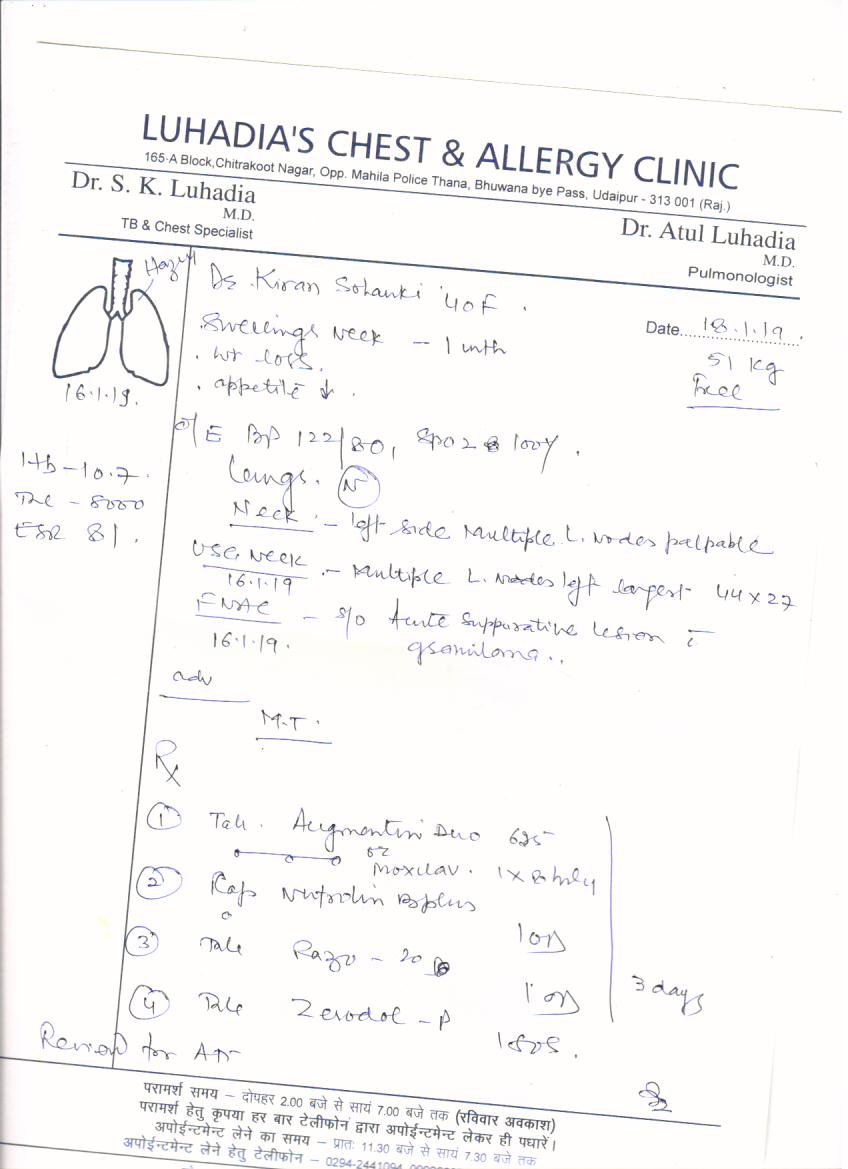 LUHADIA'S CHEST & ALLERGY CLINIC
165-A Block,Chitrakoot Nagar, Opp. Mahila Police Thana, Bhuwana bye Pass, Udaipur - 313 001 (Raj.)
Dr. S. K. Luhadia
M.D.
TB & Chest Specialist
Dr. Atul Luhadia
M.D.
Pulmonologist
Kiran Solanki 40F
Date....18.1.19
51 kg
Free
16.1.19.
Swellings Neck - 1 mth
. wt loss.
. appetite ↓.
O/E BP 122/80, SPO2 100%.
Hb - 10.7.
TLC - 8000
ESR 81.
Lungs. N
Neck - left side multiple L. nodes palpable
USG Neck - multiple L. nodes left largest 44 x 27
16.1.19
FNAC - s/o Acute suppurative lesion c̄
16.1.19. granuloma..
adv
M.T.
Rx
1 Tab. Augmentin Duo 625
or Moxclav. 1 x 8 hrly
2 Cap Nutrolin B plus
1 OD
3 Tab Razo - 20
1 OD
4 Tab Zerodol - P
1 SOS.
3 days
Review for ATT
परामर्श समय – दोपहर 2.00 बजे से सायं 7.00 बजे तक (रविवार अवकाश)
परामर्श हेतु कृपया हर बार टेलीफोन द्वारा अपोईन्टमेन्ट लेकर ही पधारें।
अपोईन्टमेन्ट लेने का समय – प्रातः 11.30 बजे से सायं 7.30 बजे तक
अपोईन्टमेन्ट लेने हेतु टेलीफोन – 0294-2441094